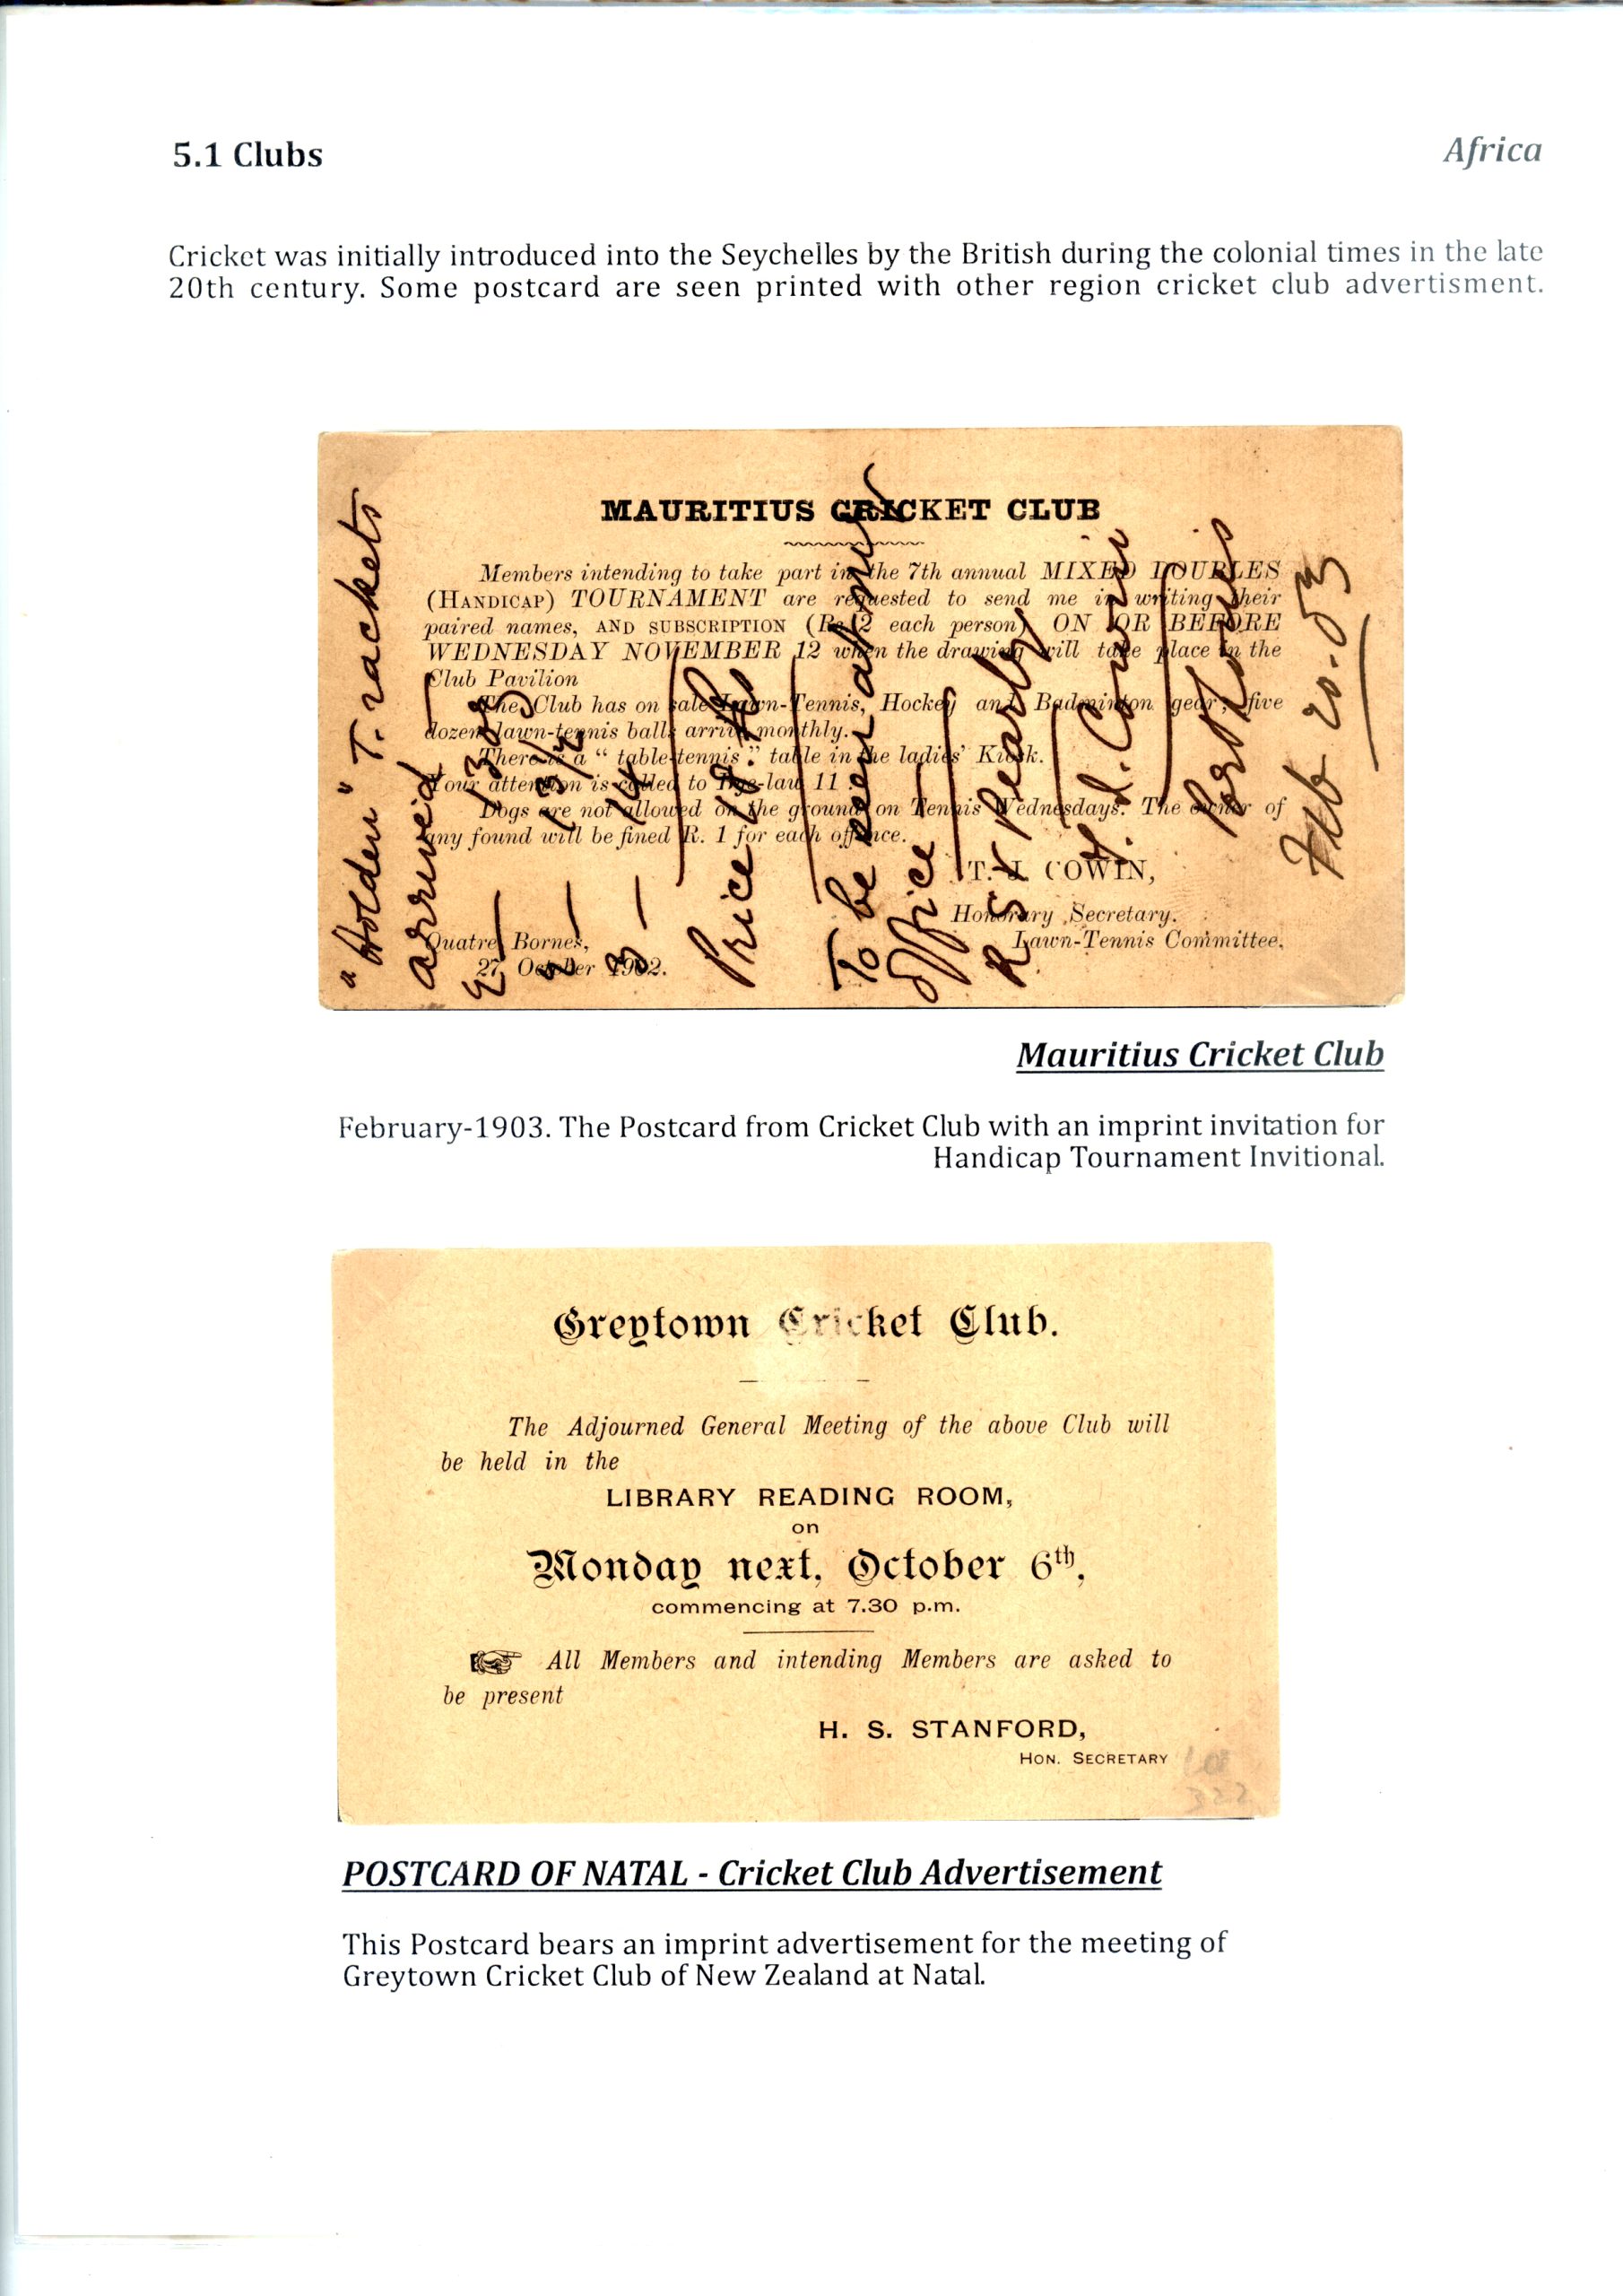 5.1 Clubs
Africa
Cricket was initially introduced into the Seychelles by the British during the colonial times in the late
20th century. Some postcard are seen printed with other region cricket club advertisment.
MAURITIUS CRICKET CLUB
Members intending to take part in the 7th annual MIXED DOUBLES
(HANDICAP) TOURNAMENT are requested to send me in writing their
paired names, AND SUBSCRIPTION (Rs 2 each person) ON OR BEFORE
WEDNESDAY NOVEMBER 12 when the drawing will take place in the
Club Pavilion
The Club has on sale Lawn-Tennis, Hockey and Badminton gear; five
dozen lawn-tennis balls arrive monthly.
There is a "table-tennis" table in the ladies' Kiosk.
Your attention is called to Bye-law 11.
Dogs are not allowed on the ground on Tennis Wednesdays. The owner of
any found will be fined R. 1 for each offence.
T. J. COWIN,
Honorary Secretary.
Lawn-Tennis Committee.
Quatre Bornes,
27 October 1902.
"Holden" T. rackets
arrived
Price
To be seen at my
office
T. J. Cowin
Port Louis
Feb 20. 03
Mauritius Cricket Club
February-1903. The Postcard from Cricket Club with an imprint invitation for
Handicap Tournament Invitional.
Greytown Cricket Club.
The Adjourned General Meeting of the above Club will
be held in the
LIBRARY READING ROOM,
on
Monday next, October 6th,
commencing at 7.30 p.m.
All Members and intending Members are asked to
be present
H. S. STANFORD,
HON. SECRETARY
322
POSTCARD OF NATAL - Cricket Club Advertisement
This Postcard bears an imprint advertisement for the meeting of
Greytown Cricket Club of New Zealand at Natal.